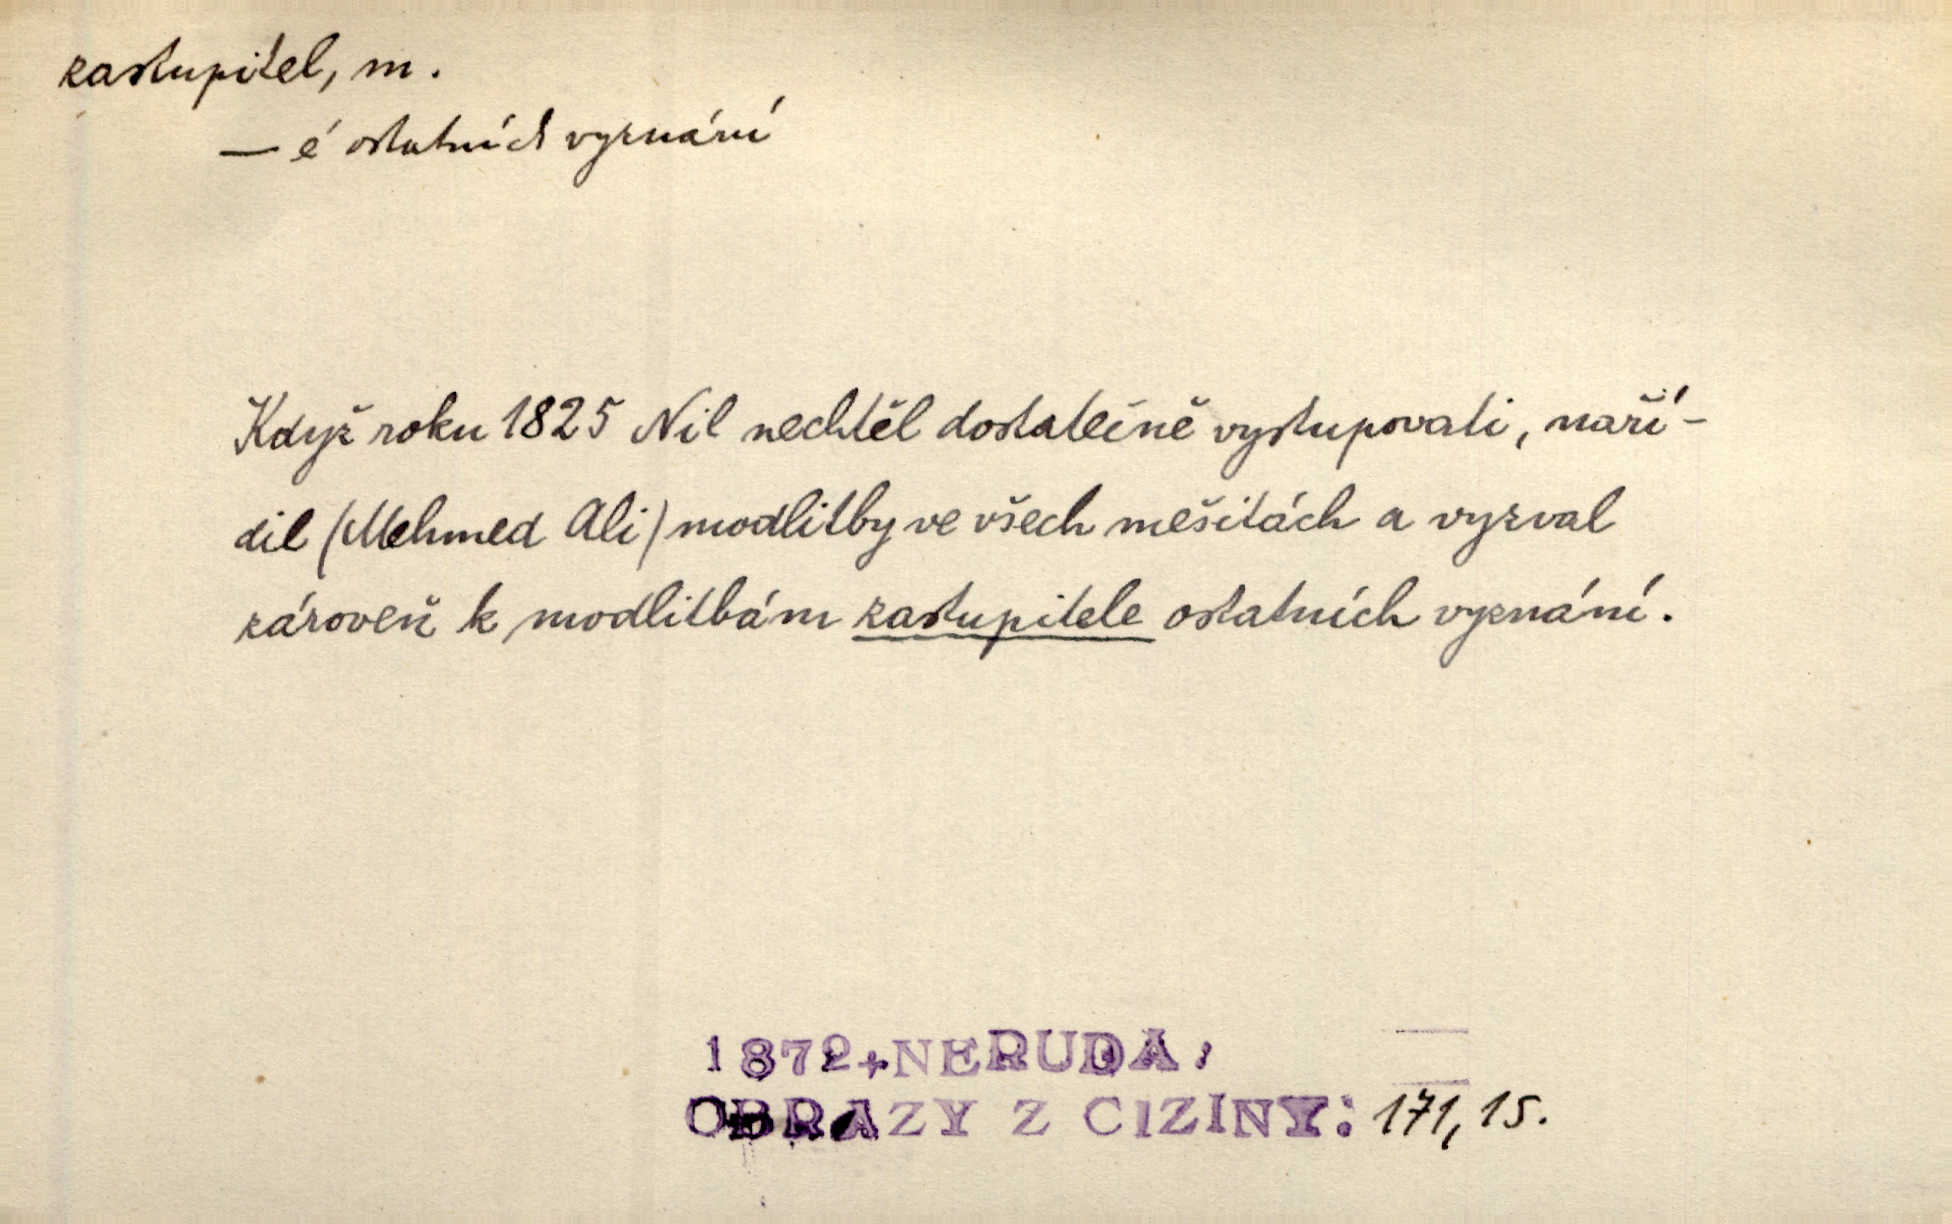 zastupitel, m.
— é ostatních vyznání
Když roku 1825 Nil nechtěl dostatečně vystupovati, naří-
dil (Mehmed Ali) modlitby ve všech mešitách a vyzval
zároveň k modlitbám zastupitele ostatních vyznání.
1872+NERUDA,
OBRAZY Z CIZINY: 171, 15.